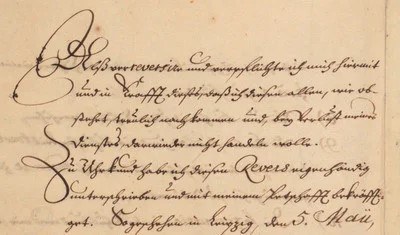 Alß reversire und verpflichte ich mich hiermit
und in Krafft dießes, daß ich diesen allen, wie ob-
stehet, treülich nachkommen und, bey Verlust meines
Dienstes, darwieder nicht handeln wolle.
Zu Uhrkund habe ich diesen Revers eigenhändig
unterschrieben und mit meinem Petschafft bekräff-
get. So geschehen in Leipzig, den 5. Maii,